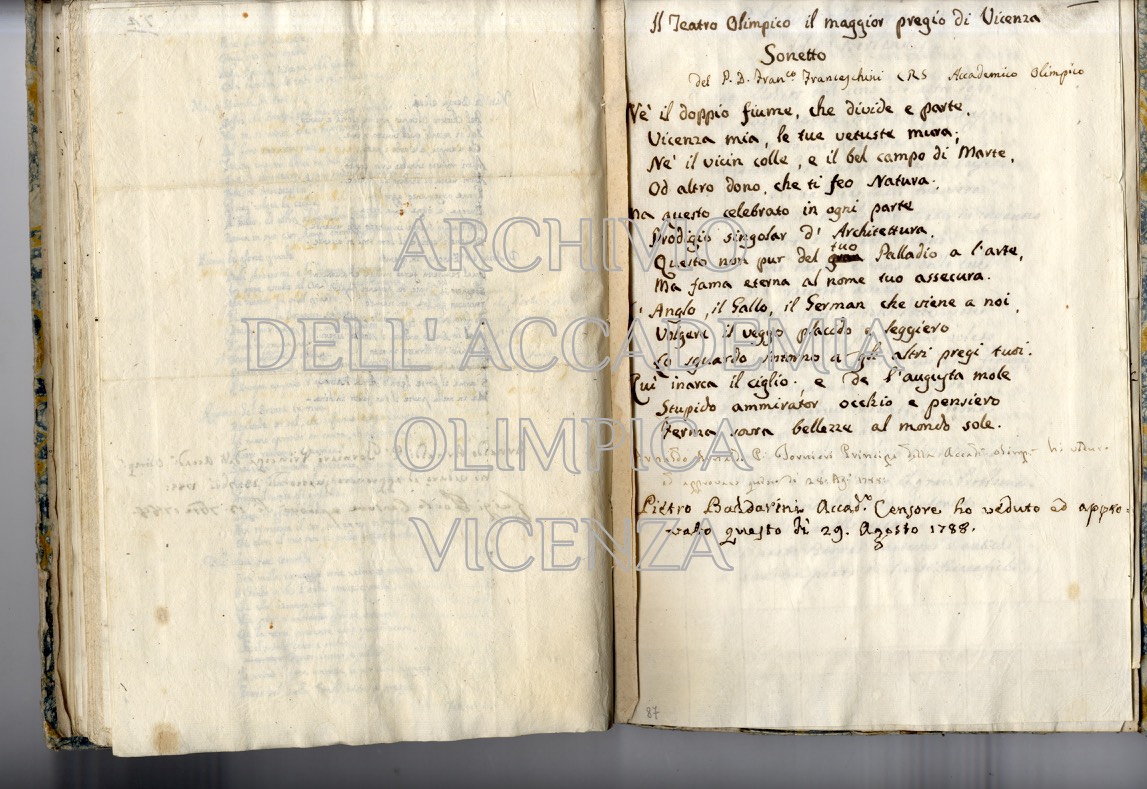 Il Teatro Olimpico il maggior pregio di Vicenza
Sonetto
del P. D. Fran.co Franceschini CRS Accademico Olimpico
Nè il doppio fiume, che divide e parte,
Vicenza mia, le tue vetuste mura;
Nè il vicin colle, e il bel campo di Marte,
Od altro dono, che ti feo Natura;
Ma questo celebrato in ogni parte
Prodigio singolar d'Architettura,
Questo non pur del tuo Palladio a l'arte,
Ma fama eterna al nome tuo assecura.
L'Anglo, il Gallo, il German che viene a noi,
Volgere il veggo placido e leggiero
Lo sguardo intorno a gli altri pregi tuoi.
Qui inarca il ciglio; e de l'augusta mole
Stupido ammirator occhio e pensiero
Ferma sovra bellezze al mondo sole.
Arnaldo Arnaldi P.o Tornieri Principe della Accad. Olimp. hò veduto
ed approvato questo dì 28. Ag. 1788
Pietro Baldarini Accad.o Censore ho veduto ed appro=
vato questo dì 29. Agosto 1788.
87
ARCHIVIO
DELL'ACCADEMIA
OLIMPICA
VICENZA